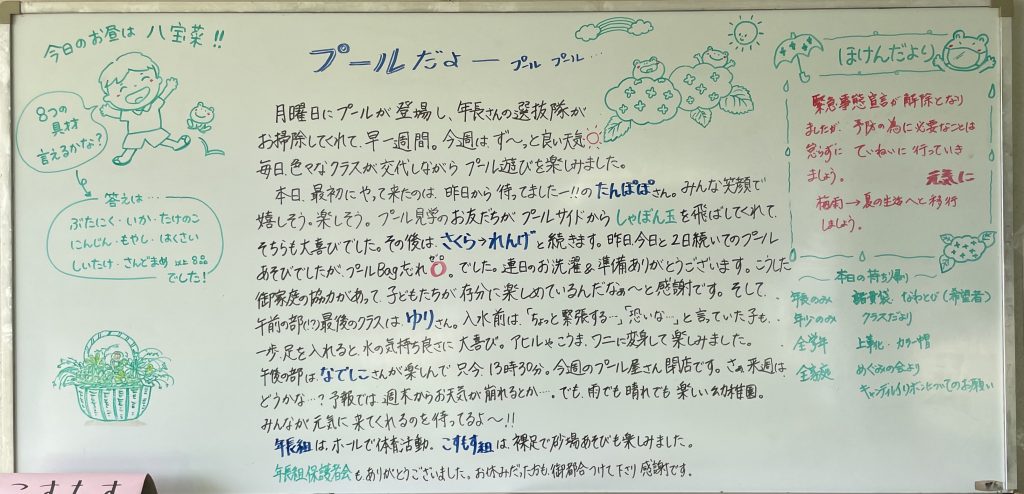 今日のお昼は 八宝菜!!
8つの
具材
言えるかな?
答えは…
ぶたにく・いか・たけのこ
にんじん・もやし・はくさい
しいたけ・さんどまめ 以上8品
でした!
プールだよー プル プル…
月曜日にプールが登場し、年長さんの選抜隊が
お掃除してくれて、早一週間。今週は、ず〜っと良い天気
毎日、色々なクラスが交代しながら プール遊びを楽しみました。
本日、最初にやって来たのは、昨日から待ってましたー!!のたんぽぽさん。みんな笑顔で
嬉しそう。楽しそう。プール見学のお友だちが プールサイドから しゃぼん玉を飛ばしてくれて、
そちらも大喜びでした。その後は、さくら→れんげと続きます。昨日、今日と2日続いてのプール
あそびでしたが、プールBag忘れ0。でした。連日のお洗濯&準備ありがとうございます。こうした
ゼロ
御家庭の協力があって、子どもたちが存分に楽しめているんだなぁ〜と感謝です。そして、
午前の部の最後のクラスは、ゆりさん。入水前は、「ちょっと緊張する…」「恐いな…」と言っていた子も、
一歩、足を入れると、水の気持ち良さに大喜び。アヒルやこうま、ワニに変身して楽しみました。
午後の部は、なでしこさんが楽しんで只今、13時30分。今週のプール屋さん閉店です。さぁ来週は
どうかな…?予報では、週末からお天気が崩れるとか…。でも、雨でも晴れても楽しい幼稚園。
みんなが元気に来てくれるのを待ってるよ〜!!
年長組は、ホールで体育活動、こすもす組は、裸足で砂場あそびも楽しみました。
年長組保護者会もありがとうございました。お休みだった方も、御都合つけて下さり感謝です。
ほけんだより
緊急事態宣言が解除となり
ましたが、予防の為に必要なことは
怠らずに ていねいに 行っていき
ましょう。 元気に
梅雨→夏の生活へと移行
しましょう。
本日の持ち帰り
年長のみ なわとび(希望者)
年少のみ クラスだより
全学年 上靴・カラー帽
全家庭 めぐみの会より
キャンドル作りボンについてのお願い
こすもす